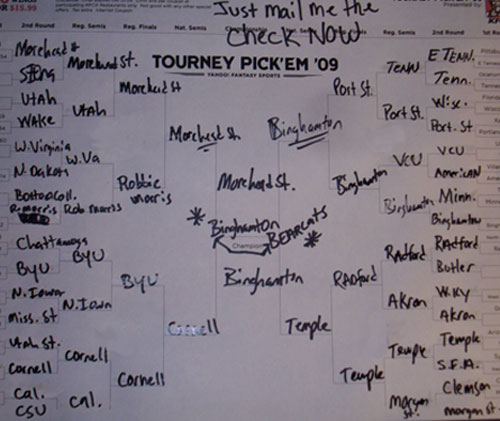 Just mail me the
check Now
2nd Round Reg. Semis Reg. Finals Nat. Semis Reg. Semis 2nd Round 1st R
OR $15.99
TOURNEY PICK'EM '09
YAHOO! FANTASY SPORTS
Morehead
Siena
Utah
Wake
W. Virginia
N. Dakota
Boston Coll.
R. Morris
Chattanooga
BYU
N. Iowa
Miss. St
Utah St.
Cornell
Cal.
CSU
Morehead St.
Utah
W. Va
Rob Morris
BYU
N. Iowa
Cornell
Cal.
Morehead St
Robbie
Morris
BYU
Cornell
Morehead St.
Cornell
Morehead St.
* Binghamton
BEARCATS *
Champion
Binghamton
Binghamton
Temple
Port St.
Binghamton
Radford
Temple
Tenn
Port St.
VCU
Binghamton
Radford
Akron
Temple
Morgan
St.
E Tenn.
Tenn.
Wisc.
Port. St
VCU
American
Minn.
Binghamton
Radford
Butler
WKY
Akron
Temple
S.F.A.
Clemson
Morgan st